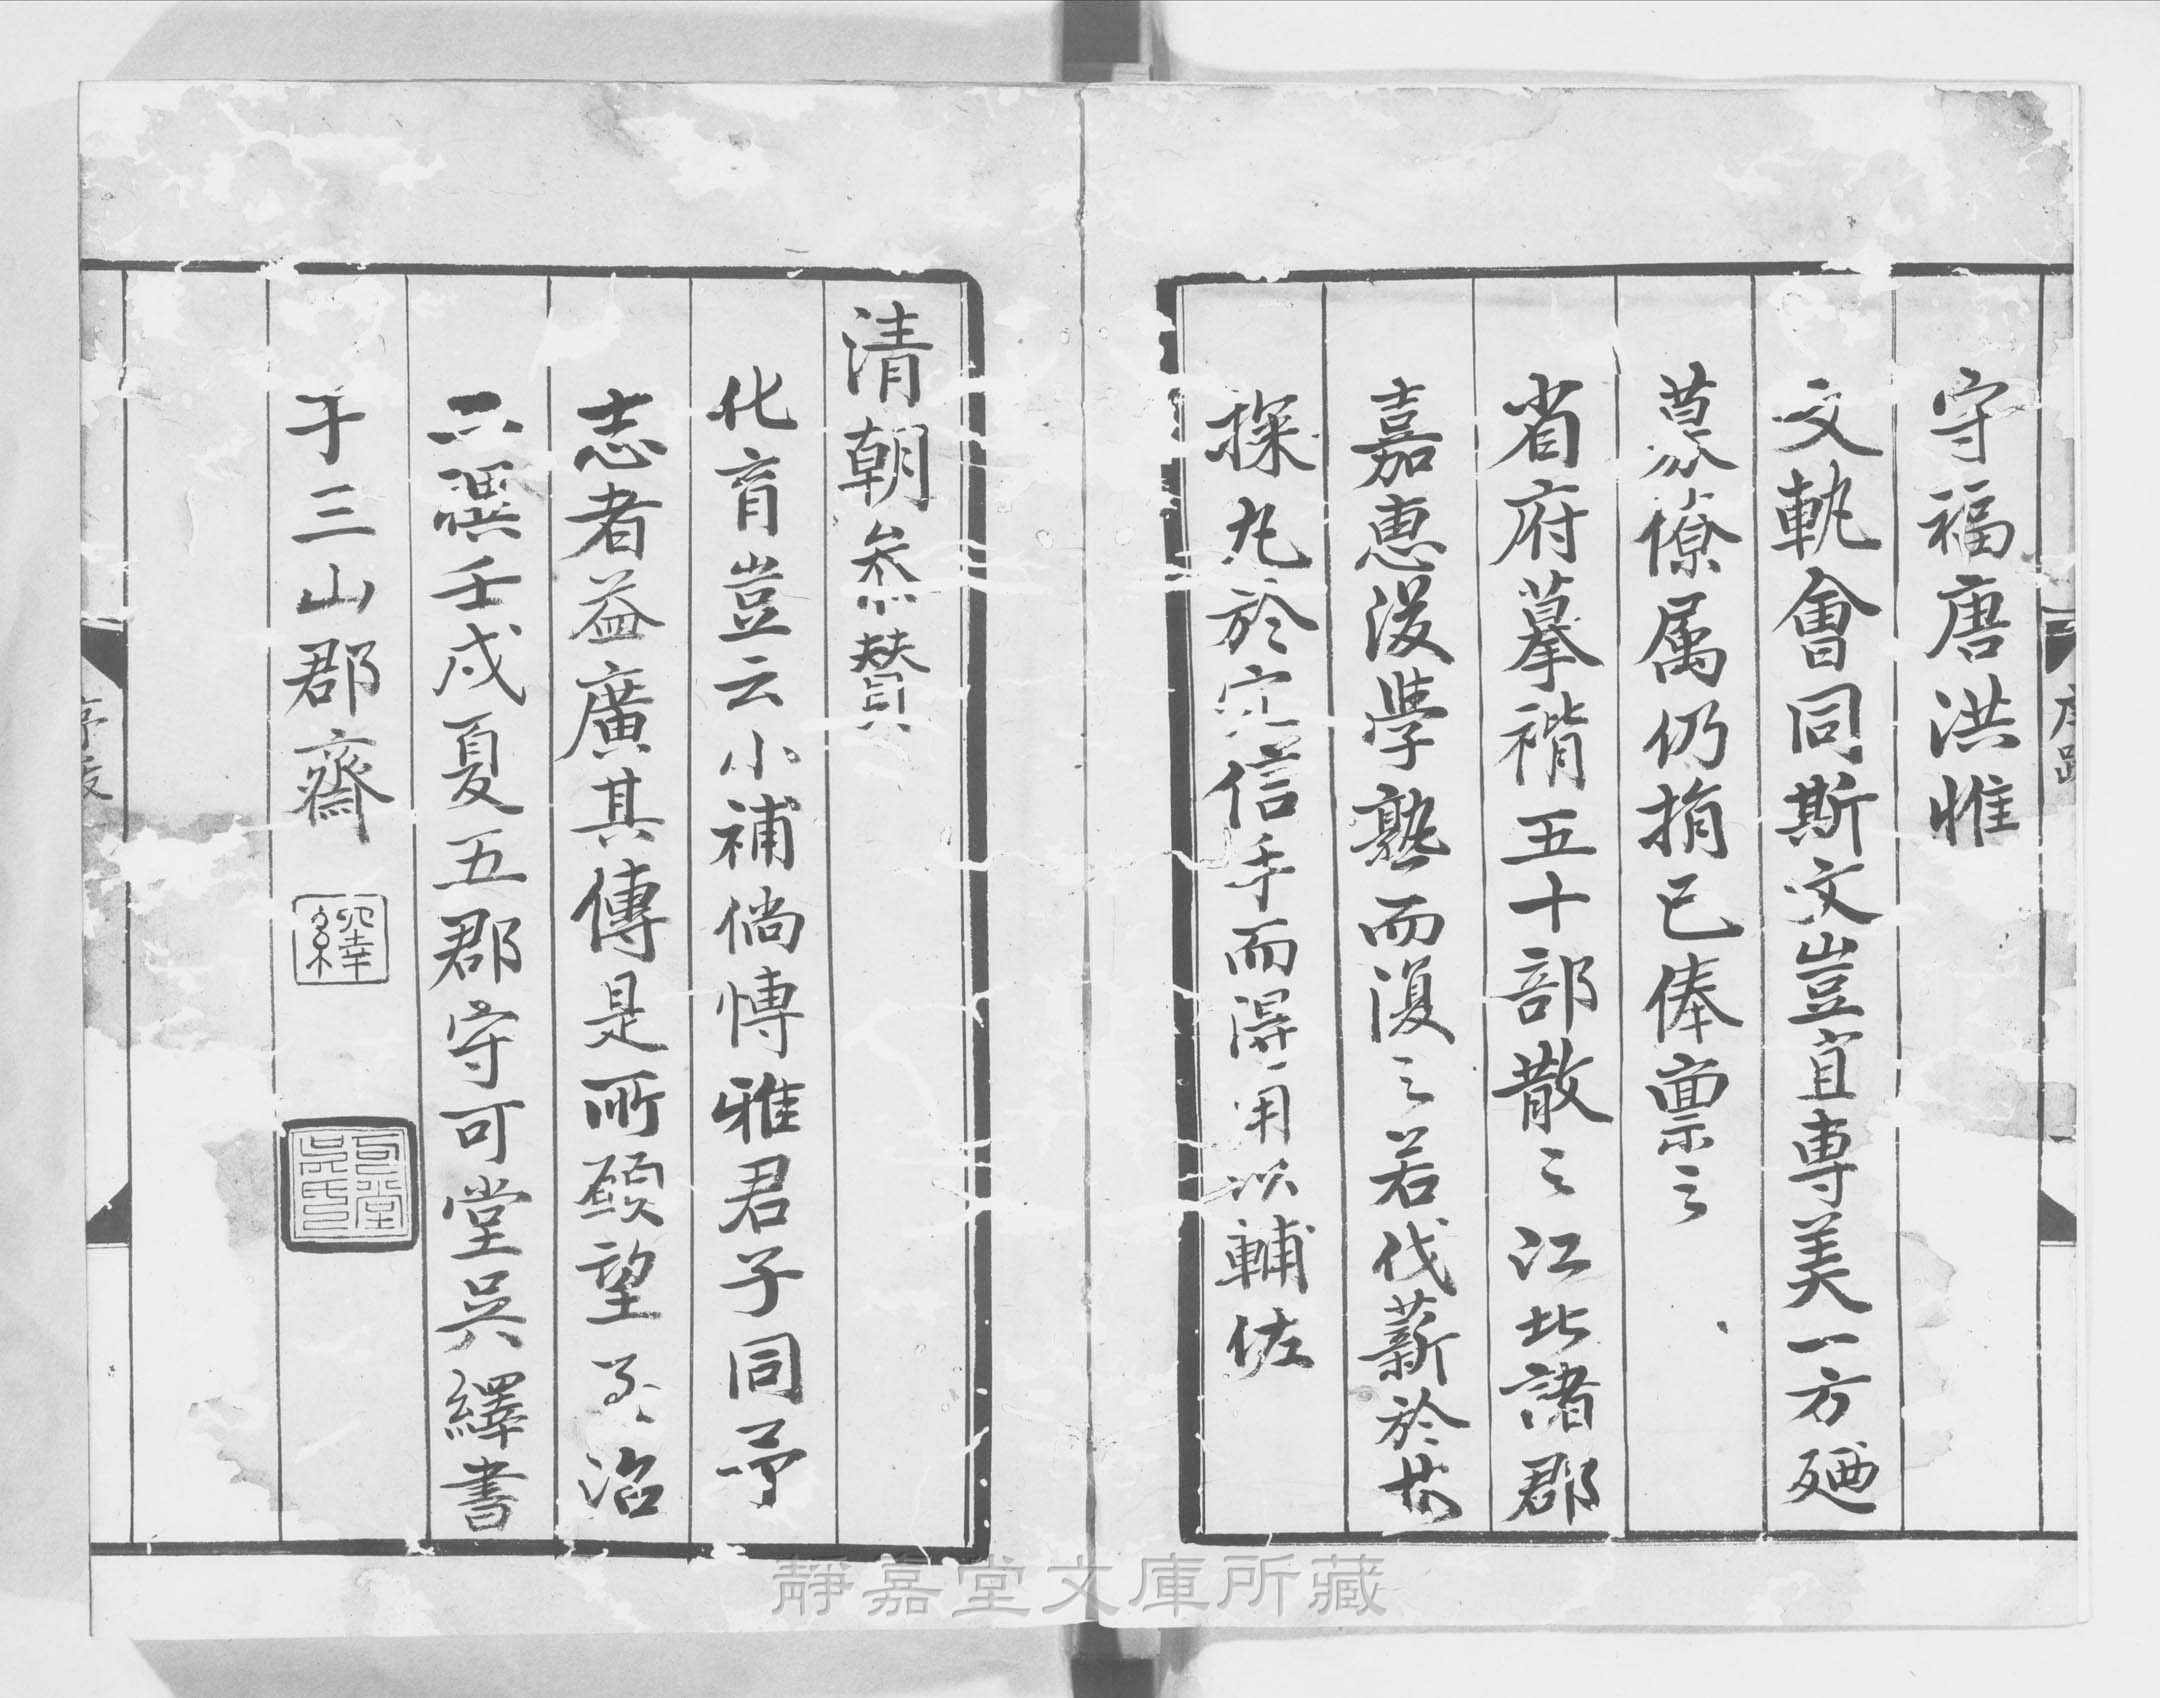 守福唐洪惟
文軌會同斯文豈宜專美一方廼
募僚属仍捐己俸禀之
省府摹褙五十部散之江北諸郡
嘉惠後學熟而復之若伐薪於林
探丸於穴信手而得用以輔佐
清朝參贊
化育豈云小補倘博雅君子同予
志者益廣其傳是所願望至治
二禩壬戌夏五郡守可堂吳繹書
于三山郡齋
繹
可堂吳氏
靜嘉堂文庫所藏